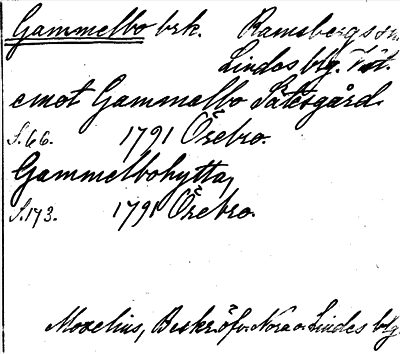 Gammelbo brk. Ramsbergs sn.
Lindes blg. Väst.
emot Gammelbo Sätesgård.
S. 66. 1791 Örebro.
Gammelbohytta,
S. 173. 1791 Örebro.
Moxelius, Beskr. öfv. Nora o. Lindes blg.